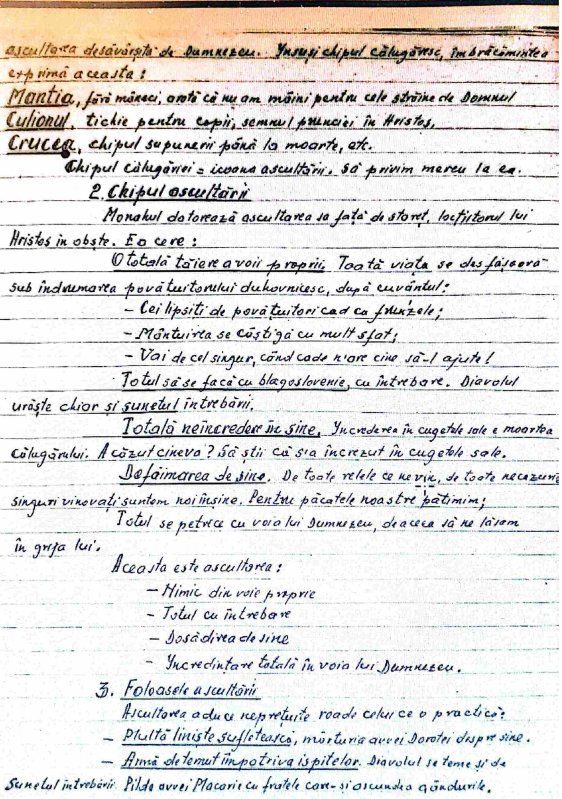 ascultarea desăvârșită de Dumnezeu. Însuși chipul călugăresc, îmbrăcămintea
exprimă aceasta:
Mantia, fără mâneci, arată că nu am mâini pentru cele străine de Domnul
Culionul, tichie pentru copii, semnul prunciei în Hristos,
Crucea, chipul supunerii până la moarte, etc.
Chipul călugăriei = icoana ascultării. Să privim mereu la ea.
2. Chipul ascultării
Monahul datorează ascultarea sa față de stareț, locțiitorul lui
Hristos în obște. Ea cere:
O totală tăiere a voii proprii. Toată viața se desfășoară
sub îndrumarea povățuitorului duhovnicesc, după cuvântul:
- Cei lipsiți de povățuitori cad ca frunzele;
- Mântuirea se câștigă cu mult sfat;
- Vai de cel singur, când cade n'are cine să-l ajute!
Totul să se facă cu blagoslovenie, cu întrebare. Diavolul
urăște chiar și sunetul întrebării.
Totală neîncredere în sine. Încrederea în cugetele sale e moartea
călugărului. A căzut cineva? Să știi că s'a încrezut în cugetele sale.
Defăimarea de sine. De toate relele ce ne vin, de toate necazurile
singuri vinovați suntem noi înșine. Pentru păcatele noastre pătimim;
Totul se petrece cu voia lui Dumnezeu, de aceea să ne lăsăm
în grija lui.
Aceasta este ascultarea:
- Nimic din voie proprie
- Totul cu întrebare
- Dosădirea de sine
- Încredințare totală în voia lui Dumnezeu.
3. Foloasele ascultării
Ascultarea aduce neprețuite roade celui ce o practică:
- Multă liniște sufletească, mărturia avvei Dorotei despre sine.
- Armă de temut împotriva ispitelor. Diavolul se teme și de
sunetul întrebării. Pilda avvei Macarie cu fratele care-și ascundea gândurile.